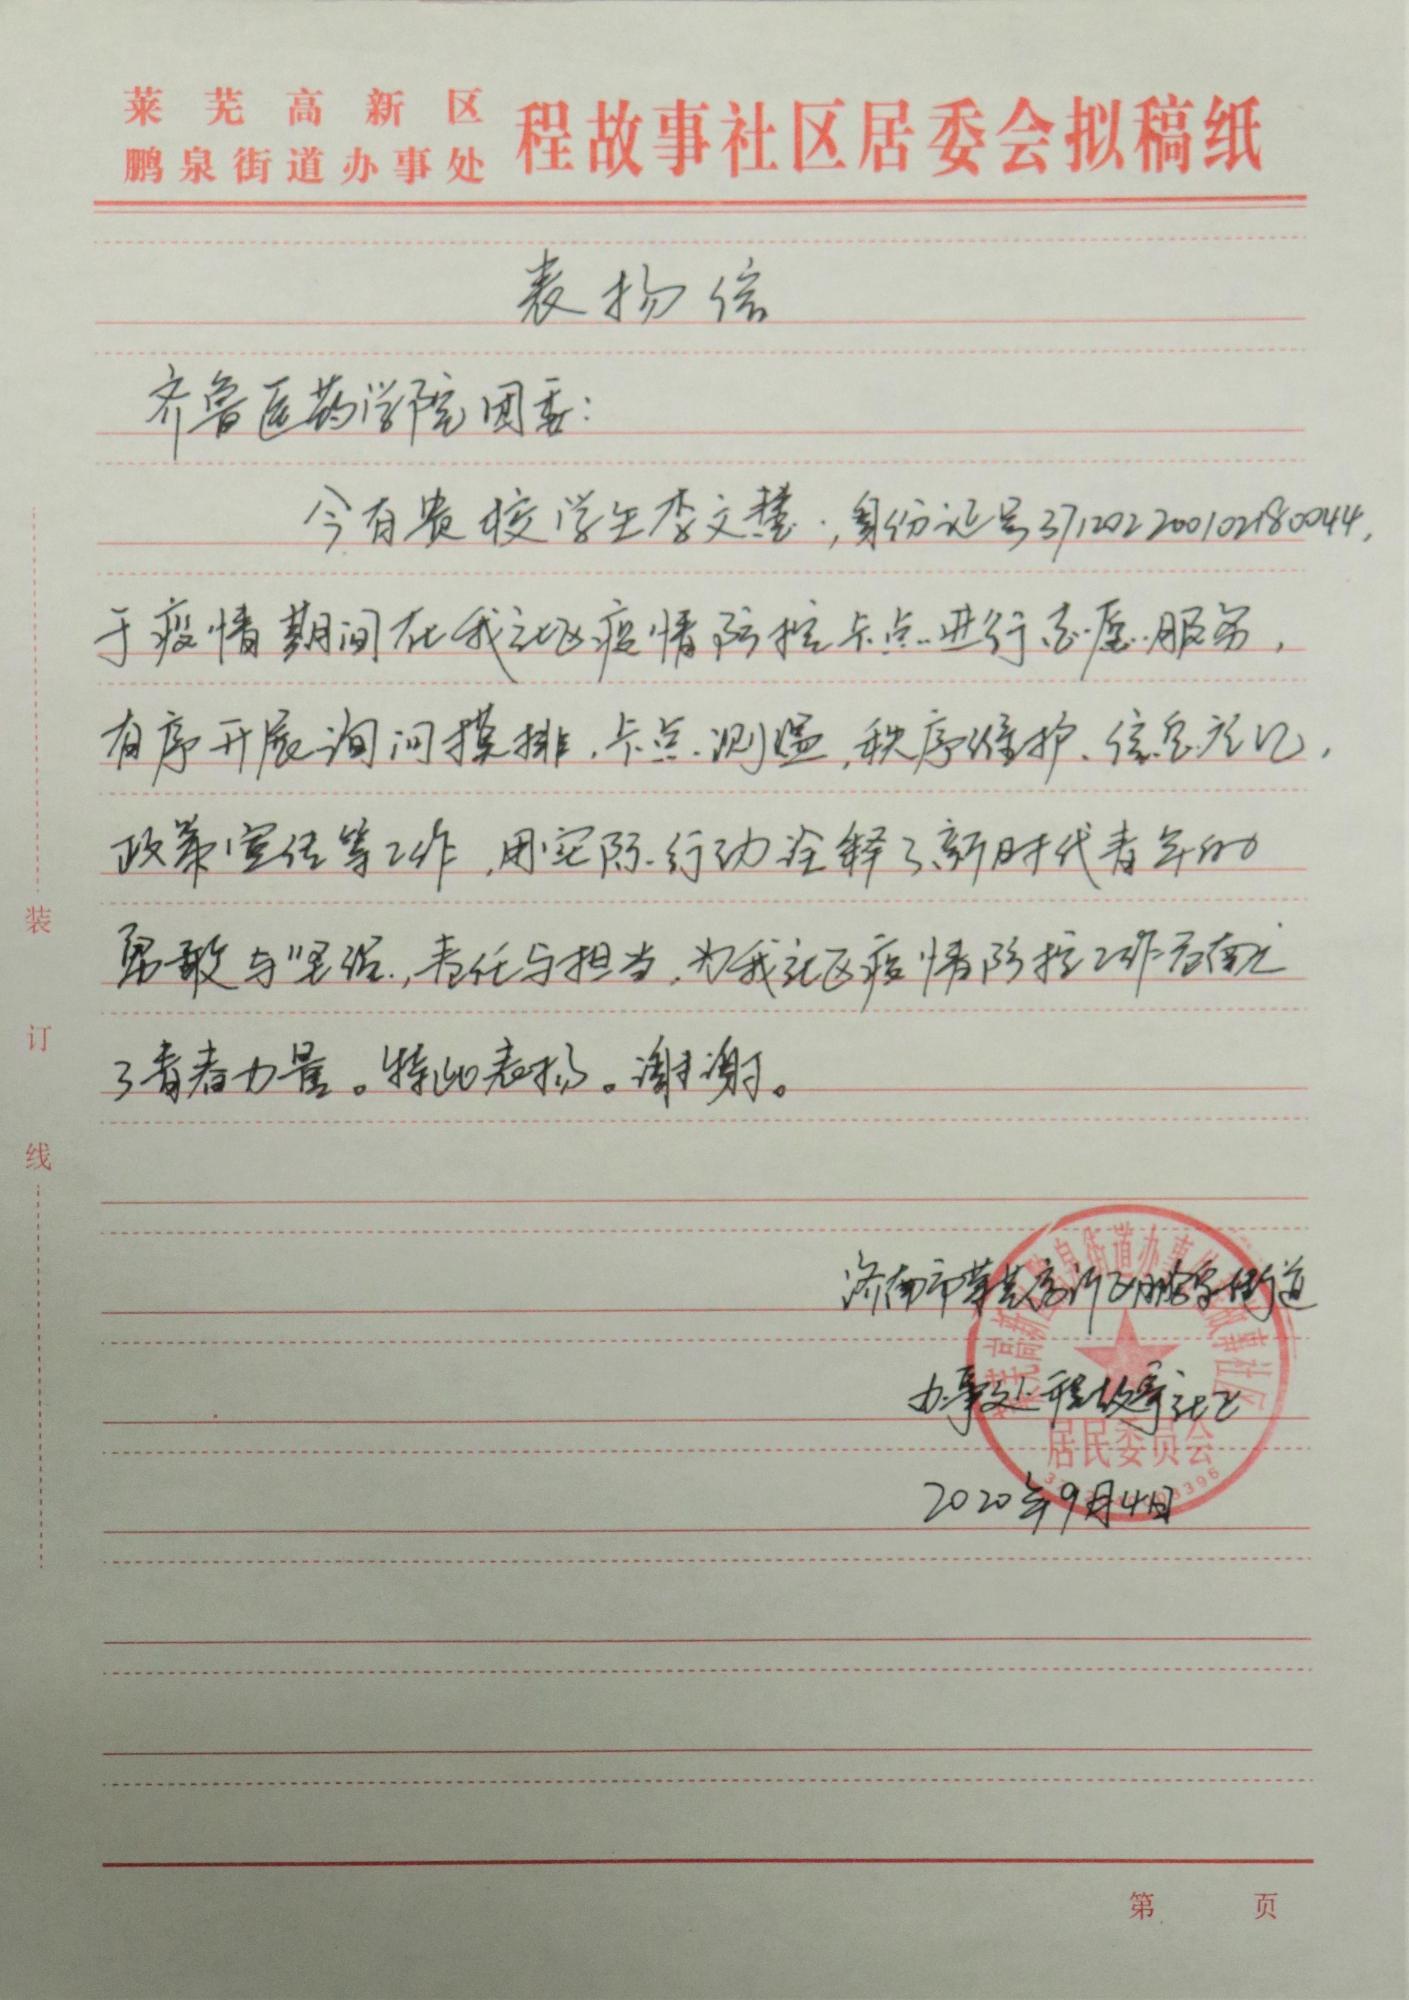 莱芜高新区
鹏泉街道办事处
程故事社区居委会拟稿纸
表扬信
齐鲁医药学院团委：
今有贵校学生李文慧，身份证号371202200102180044，
于疫情期间在我社区疫情防控卡点进行志愿服务，
有序开展询问摸排、卡点测温、秩序维护、信息登记、
政策宣传等工作，用实际行动诠释了新时代青年的
勇敢与坚强，责任与担当，为我社区疫情防控工作贡献
了青春力量。特此表扬。谢谢。
济南市莱芜高新区鹏泉街道
办事处程故事社区
2020年9月4日
莱芜高新区鹏泉街道办事处程故事社区
居民委员会
装
订
线
第 页